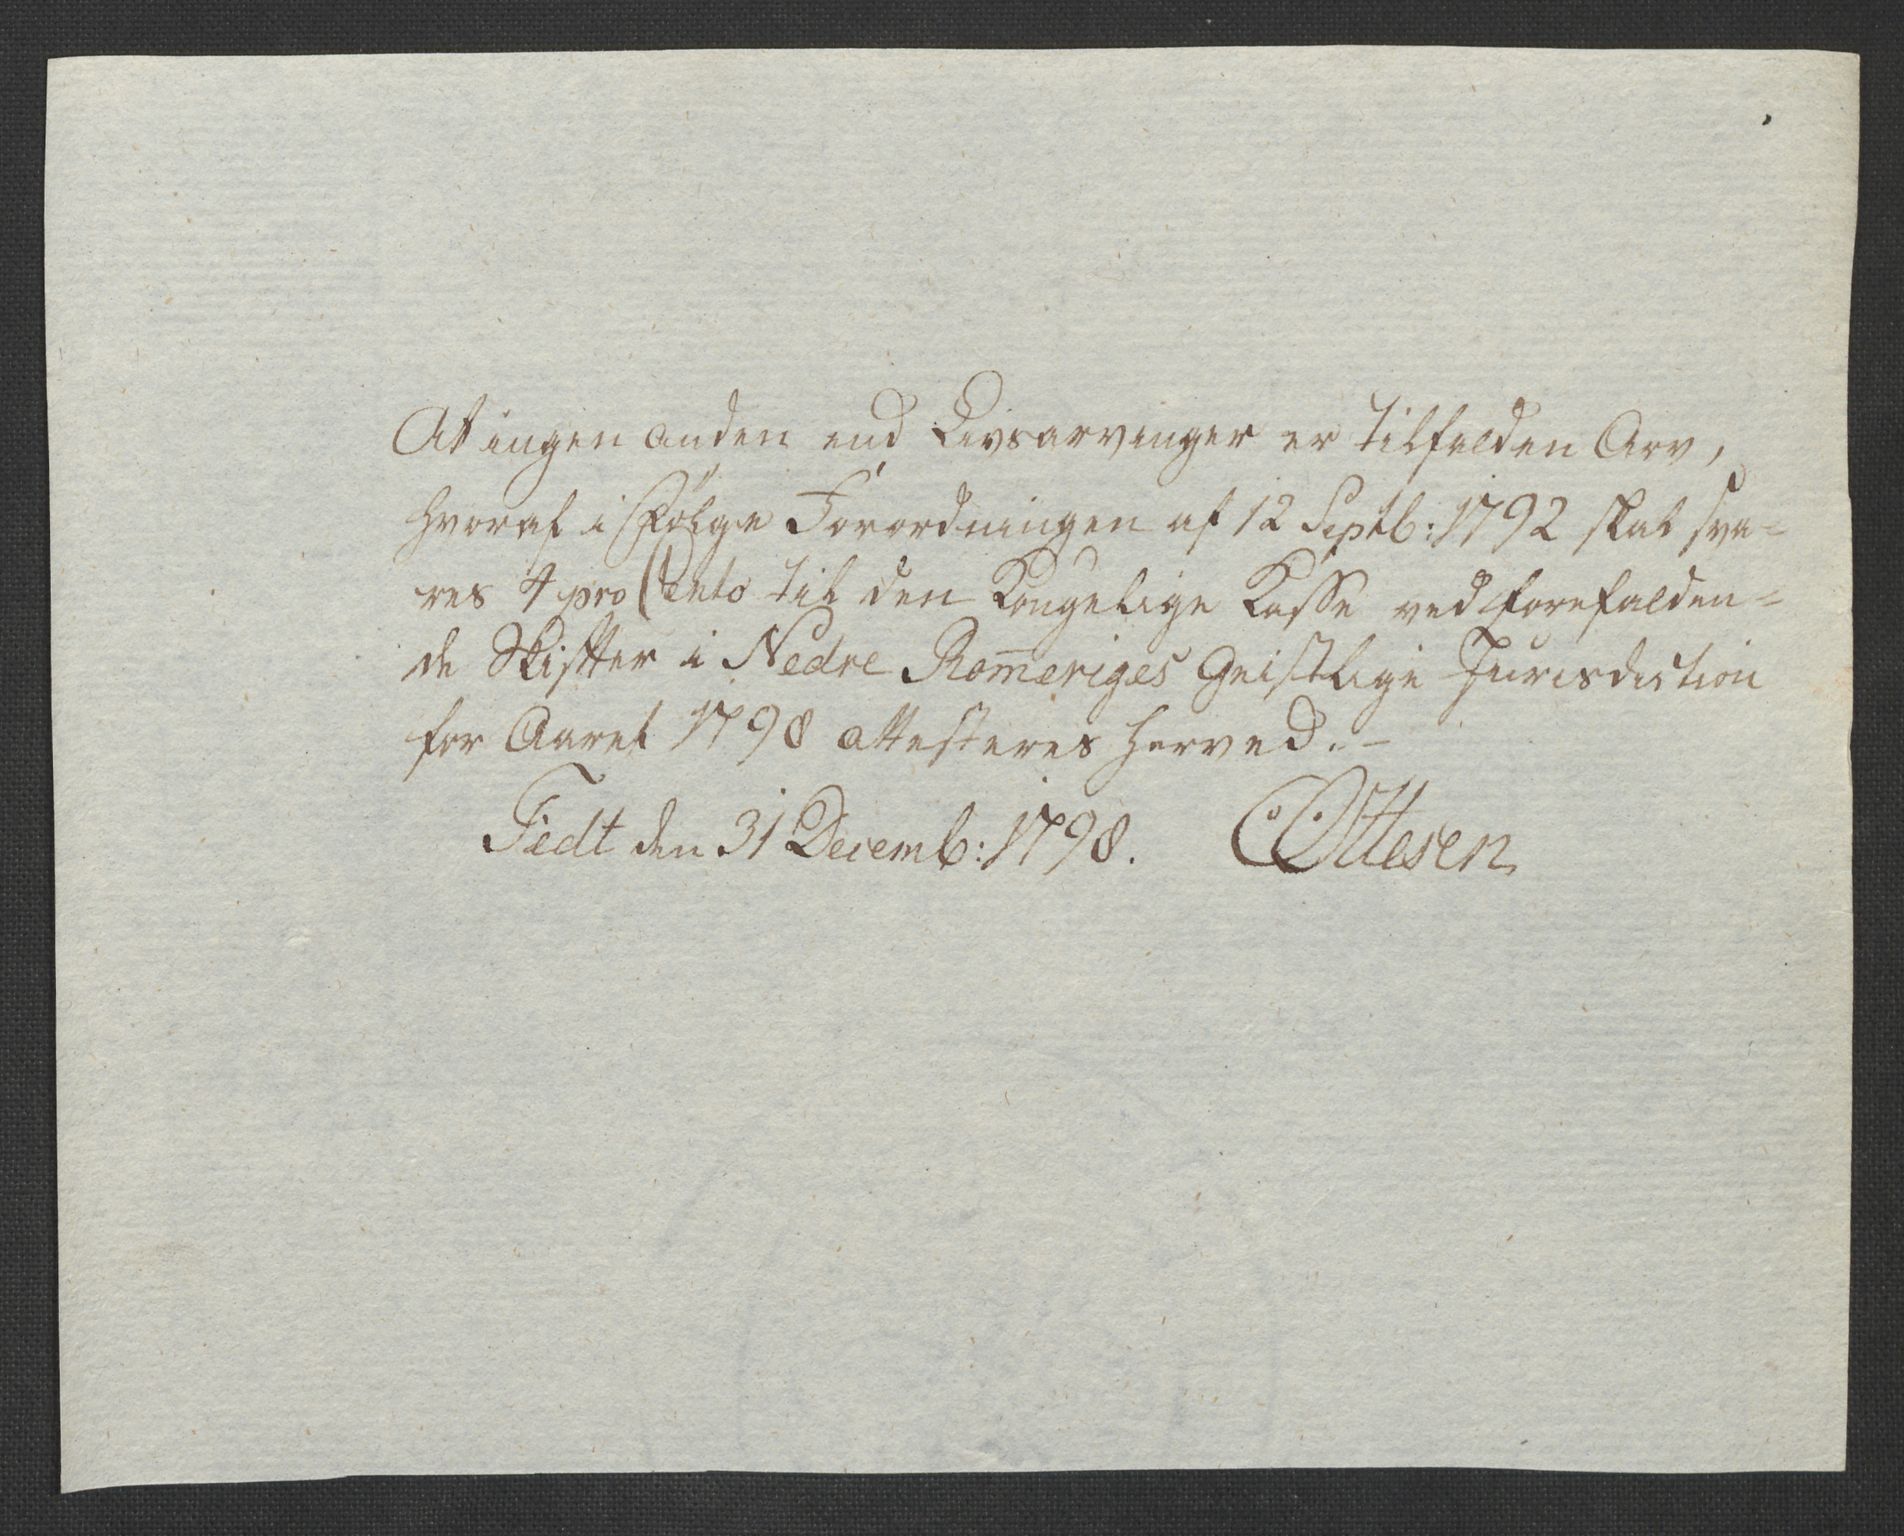 At ingen anden end Livsarvinger er tilfalden Arv,
hvoraf i Følge Forordningen af 12 Septb: 1792 skal sva-
res 4 pro Cento til den Kongelige Kasse ved forefalden-
de Skifter i Nedre Rom̅eriges Geistlige Jurisdiction
for Aaret 1798 attesteres herved. -
Fedt den 31 Decemb: 1798. COttesen